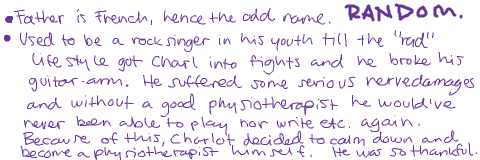 • Father is French, hence the odd name. RANDOM.
• Used to be a rocksinger in his youth till the "rad"
lifestyle got Charl into fights and he broke his
guitar-arm. He suffered some serious nervedamages
and without a good physiotherapist he would've
never been able to play nor write etc. again.
Because of this, Charlot decided to calm down and
become a physiotherapist himself. He was so thankful.